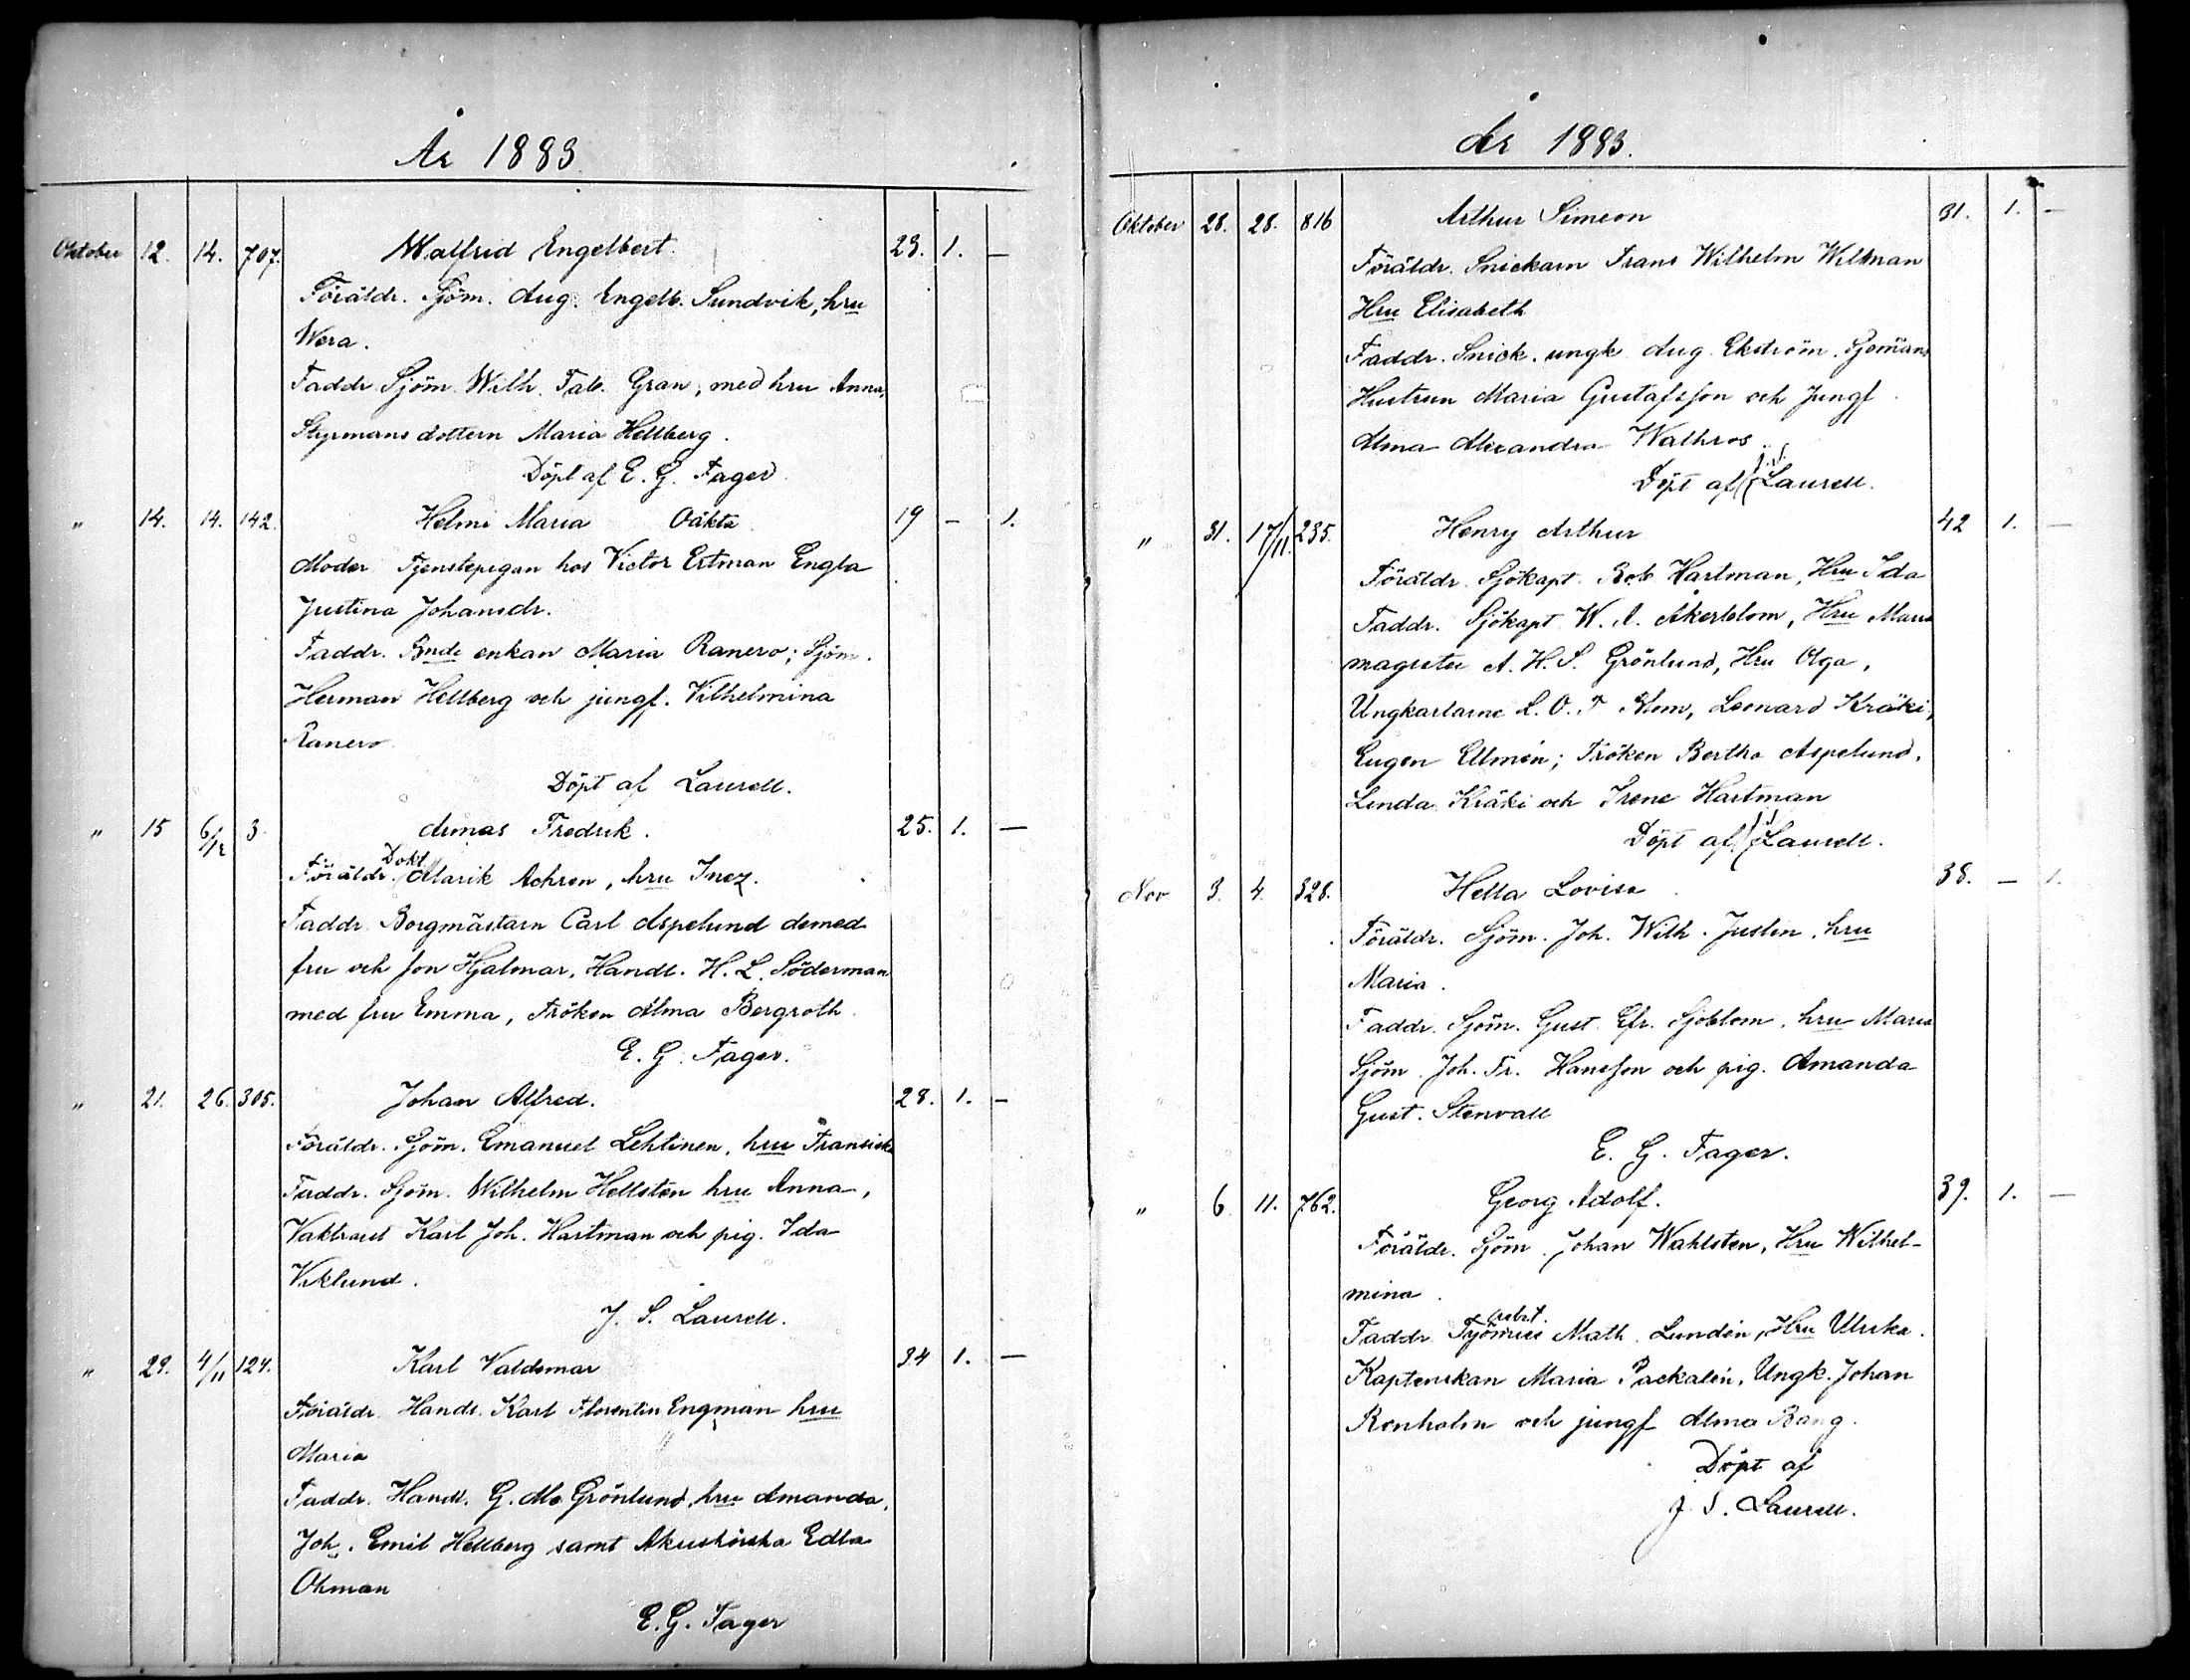 År 1883
Oktober 12. 14. 707. Walfrid Engelbert. 23. 1. —
Föräldr. Sjöm. Aug. Engelb. Sundvik, hru
Wera.
Faddr Sjöm. Wilh. Fab. Gran, med hru Anna,
Styrmans dottern Maria Hellberg.
Döpt af E. G. Fager
" 14. 14. 142. Helmi Maria Oäkta 19 — 1.
Moder Tjenstepigan hos Victor Ertman Engla
Justina Johansdr.
Faddr. Bnde enkan Maria Ranero; Sjöm.
Herman Hellberg och jungf. Vilhelmina
Ranero
Döpt af Laurell.
" 15 6/12 3 Armas Fredrik. 25. 1. —
Dokt
Föräldr. Alarik Achren, hru Inez.
Faddr Borgmästarn Carl Aspelund demed
fru och son Hjalmar, Handl. H. L. Söderman
med fru Emma, Fröken Alma Bergroth.
E. G. Fager.
" 21. 26. 305. Johan Alfred. 28. 1. —
Föräldr. Sjöm. Emanuel Lehtinen, hru Fransiska
Faddr. Sjöm. Wilhelm Hellsten hru Anna,
Karl Joh. Hartman och pig. Ida
Viklund.
J. S. Laurell.
" 29. 4/11 124. Karl Valdemar 34 1. —
Föräldr. Handl. Karl Florentin Engman hru
Maria
Faddr. Handl. G. Mo Grönlund, hru Amanda,
Joh. Emil Hellberg samt Akushörska Edla
Ohman
E. G. Fager
År 1883.
Oktober 28. 28. 816 Arthur Simeon 31. 1. —
Föräldr. Snickarn Frans Wilhelm Willman
Hru Elisabeth
Faddr. Snick. ungk Aug. Ekström. Sjömans
Hustrun Maria Gustafsson och Jungf
Alma Alexandra Walhros.
Döpt af J. S. Laurell.
" 31. 17/11. 235. Henry Arthur 42 1. —
Föräldr. Sjökapt. Rob Hartman, Hru Ida
Faddr. Sjökapt W. A. Åkerblom, Hru Maria
magister A. H. S. Grönlund, Hru Olga,
Ungkarlarne L. O. T Blom, Leonard Kräki,
Eugen Ellmén; Fröken Bertha Aspelund,
Linda Kräki och Irene Hartman
Döpt af J. S. Laurell.
Nov 3. 4. 328. Hella Lovisa 38. — 1.
Föräldr. Sjöm. Joh. Wilh. Juslin, hru
Maria.
Faddr. Sjöm. Gust. Efr. Sjöblom, hru Maria
Sjöm. Joh. Fr. Hansson och pig. Amanda
Gust. Stenvall
E. G. Fager.
" 6 11. 762. Georg Adolf. 39. 1. —
Föräldr. Sjöm. Johan Wahlsten, Hru Wilhel-
mina.
Faddr Math. Lundén, Hru Ulrika.
Kaptenskan Maria Packalén, Ungk. Johan
Renholm och jungf Alma Bang.
Döpt af
J. S. Laurell.